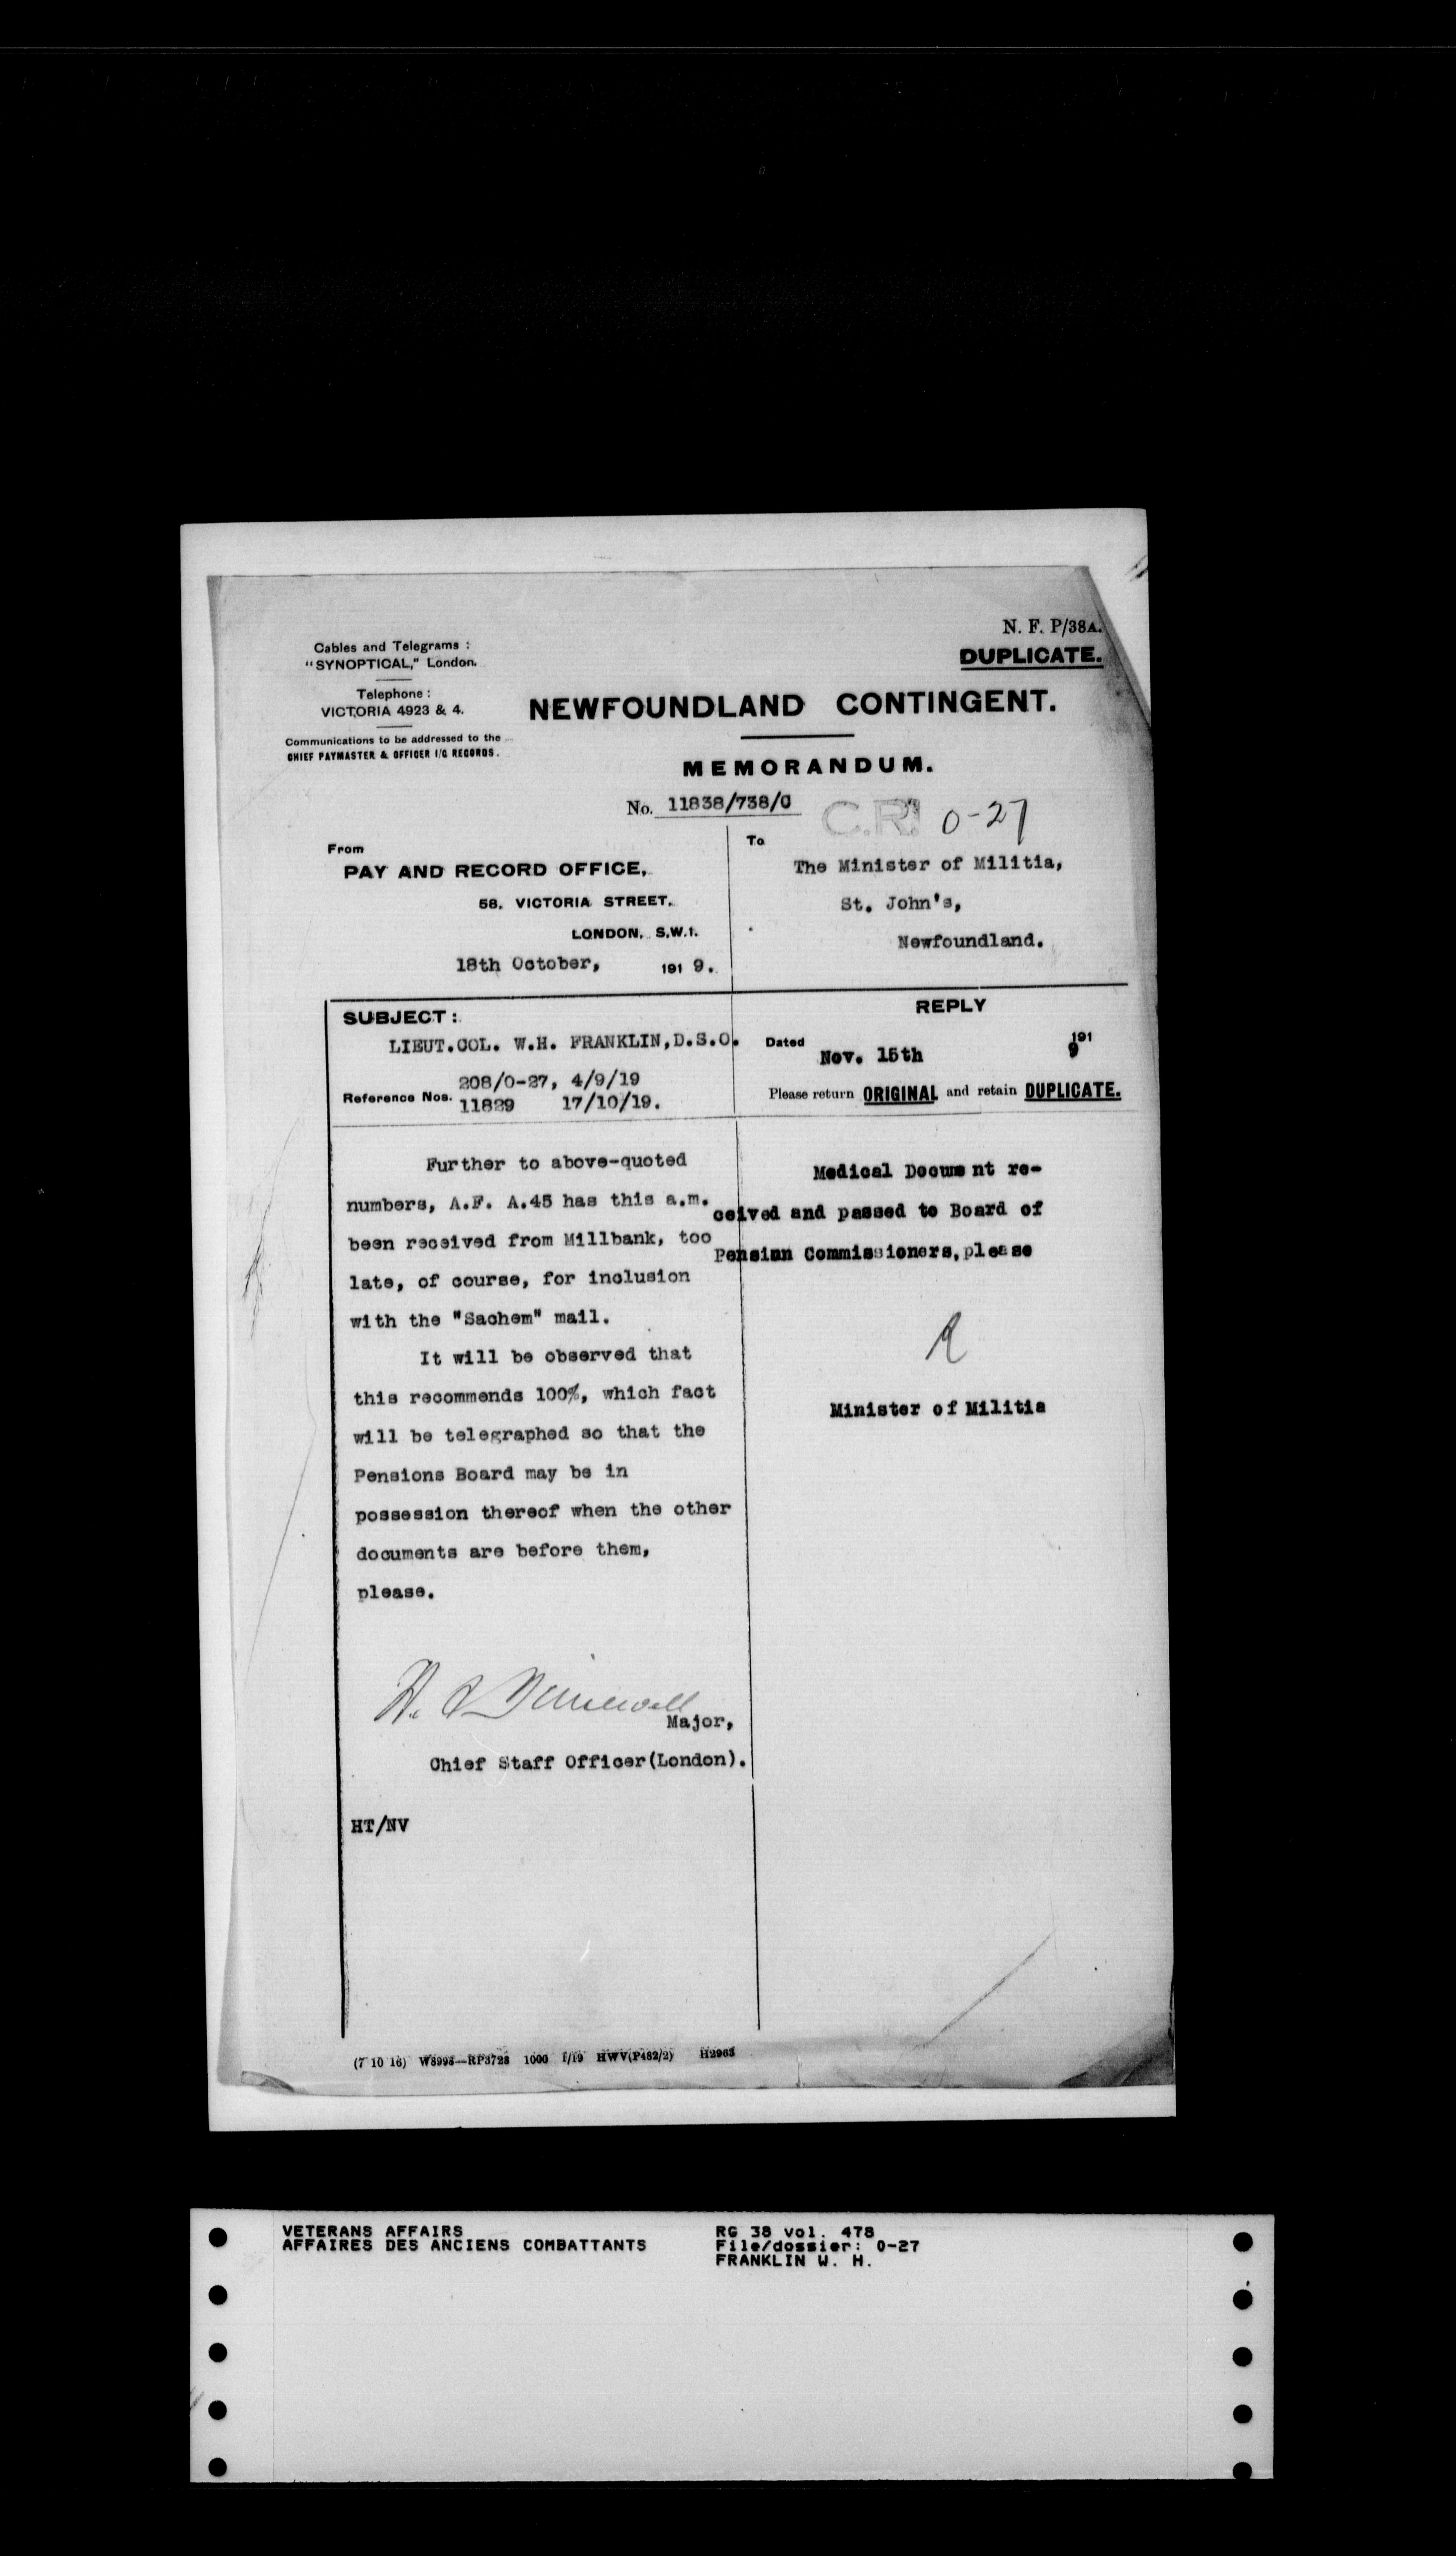 N. F. P/38A.
DUPLICATE.
Cables and Telegrams :
"SYNOPTICAL," London.
Telephone :
VICTORIA 4923 & 4.
Communications to be addressed to the
CHIEF PAYMASTER & OFFICER I/C RECORDS.
NEWFOUNDLAND CONTINGENT.
MEMORANDUM.
No. 11838/738/O
C.R. 0-27
From
PAY AND RECORD OFFICE,
58, VICTORIA STREET,
LONDON, S.W.1.
18th October, 1919.
To
The Minister of Militia,
St. John's,
Newfoundland.
SUBJECT :
LIEUT.COL. W.H. FRANKLIN,D.S.O.
Reference Nos. 208/O-27, 4/9/19
11829 17/10/19.
REPLY
Dated Nov. 15th 1919
Please return ORIGINAL and retain DUPLICATE.
Further to above-quoted
numbers, A.F. A.45 has this a.m.
been received from Millbank, too
late, of course, for inclusion
with the "Sachem" mail.
It will be observed that
this recommends 100%, which fact
will be telegraphed so that the
Pensions Board may be in
possession thereof when the other
documents are before them,
please.
Major,
Chief Staff Officer(London).
HT/NV
Medical Document re-
ceived and passed to Board of
Pension Commissioners,please
Minister of Militia
(7 10 16) W8998—RP3728 1000 1/19 HWV(P482/2) H2963
VETERANS AFFAIRS
AFFAIRES DES ANCIENS COMBATTANTS
RG 38 vol. 478
File/dossier: 0-27
FRANKLIN W. H.